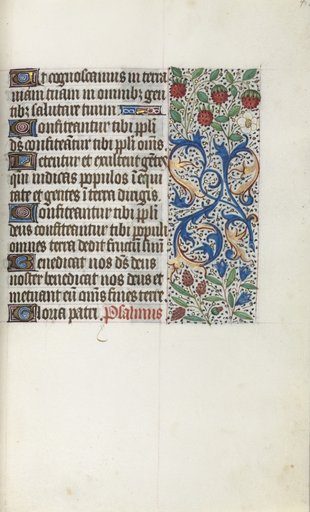 Ut cognoscamus in terra
viam tuam in omnibȝ gen
tibȝ salutare tuum
Confiteantur tibi ppli
ds confiteātur tibi ppli oms
Letentur et exultent gētes
qm iudicas populos ī equi
tate et gentes ī terra dirigis
Confiteantur tibi ppli
deus confiteantur tibi populi
omnes terra dedit fructū suū
Benedicat nos ds deus
noster benedicat nos deus et
metuant eū oms fines terre
Gloria patri. Psalmus